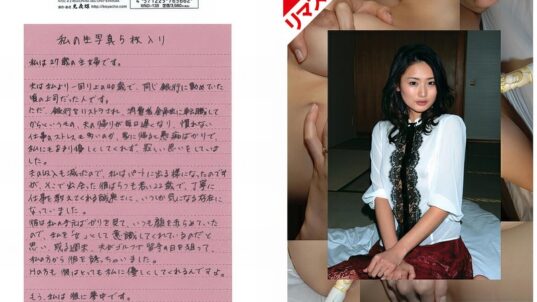 4 571225 785662
私の生写真5枚入り
私は27歳の主婦です。
夫は私より一回り上の40歳で、同じ銀行に勤めていた
頃の上司だった人です。
ただ、銀行をリストラされ、消費者金融に転職して
からというもの、夫の帰りが毎日遅くなり、慣れない
仕事のストレスも多いのか、家に帰ると愚痴ばかりで、
私にもあまり優しくしてくれず、寂しい思いをしていま
した。
夫の収入も減ったので、私はパートに出る様になったのです
が、そこで出会った彼はうんと若い22歳で、丁寧に
仕事を教えてくれる誠実さに、いつか気になる存在に
なっていました。
彼は私の手元ばかりを見て、いつも顔を赤らめていた
ので、私を「女」として意識してくれているのだと
思い、或る週末、夫がゴルフで留守の日を狙って、
私の方から彼を誘っちゃいました。
Hの方も彼はとっても私に優しくしてくれるんですよ。
もう、私は彼に夢中です。
リマス